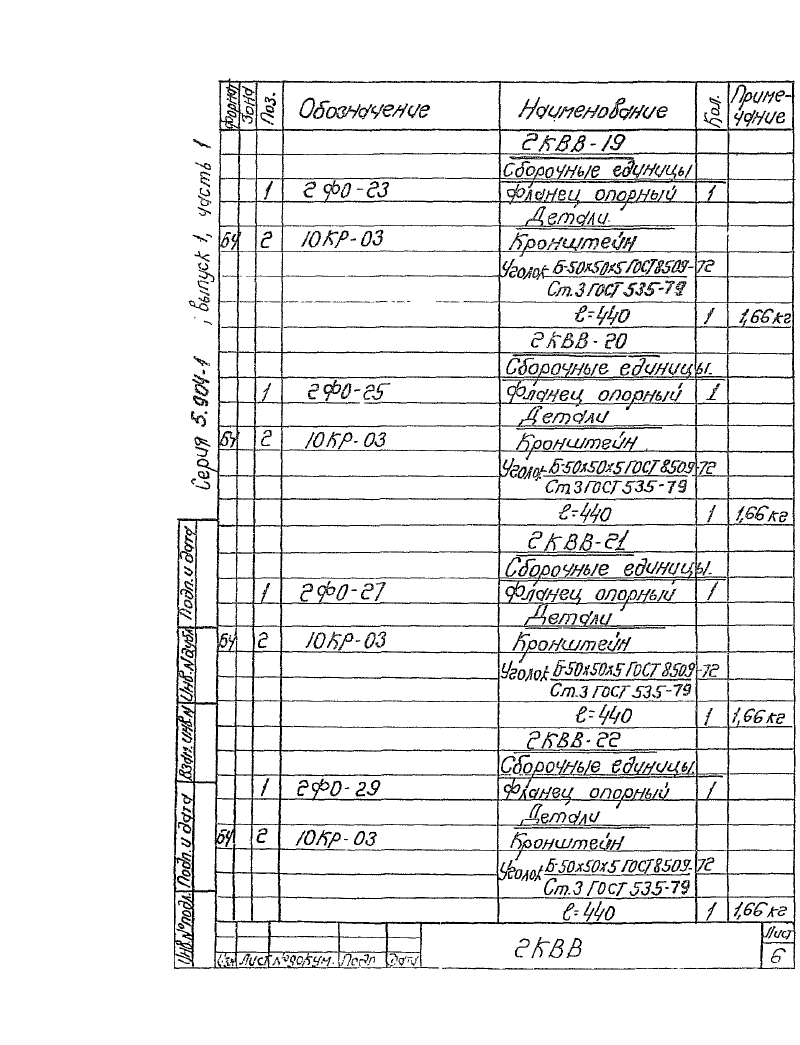 Серия 5.904-1 ; выпуск 1, часть 1
Формат Зона Поз. Обозначение Наименование Кол. Приме-
чание
2КВВ-19
Сборочные единицы
1 2ФО-23 Фланец опорный 1
Детали
БЧ 2 10КР-03 Кронштейн
Уголок Б-50х50х5 ГОСТ 8509-72
Ст.3 ГОСТ 535-79
ℓ=440 1 1,66кг
2КВВ-20
Сборочные единицы.
1 2ФО-25 Фланец опорный 1
Детали
БЧ 2 10КР-03 Кронштейн
Уголок Б-50х50х5 ГОСТ 8509-72
Ст.3 ГОСТ 535-79
ℓ=440 1 1,66кг
2КВВ-21
Сборочные единицы.
1 2ФО-27 Фланец опорный 1
Детали
БЧ 2 10КР-03 Кронштейн
Уголок Б-50х50х5 ГОСТ 8509-72
Ст.3 ГОСТ 535-79
ℓ=440 1 1,66кг
2КВВ-22
Сборочные единицы.
1 2ФО-29 Фланец опорный 1
Детали
БЧ 2 10КР-03 Кронштейн
Уголок Б-50х50х5 ГОСТ 8509-72
Ст.3 ГОСТ 535-79
ℓ=440 1 1,66кг
Инв.№ подл. Подп. и дата Взам. инв.№ Инв.№ дубл. Подп. и дата
Изм Лист № докум. Подп Дата
2КВВ
Лист
6